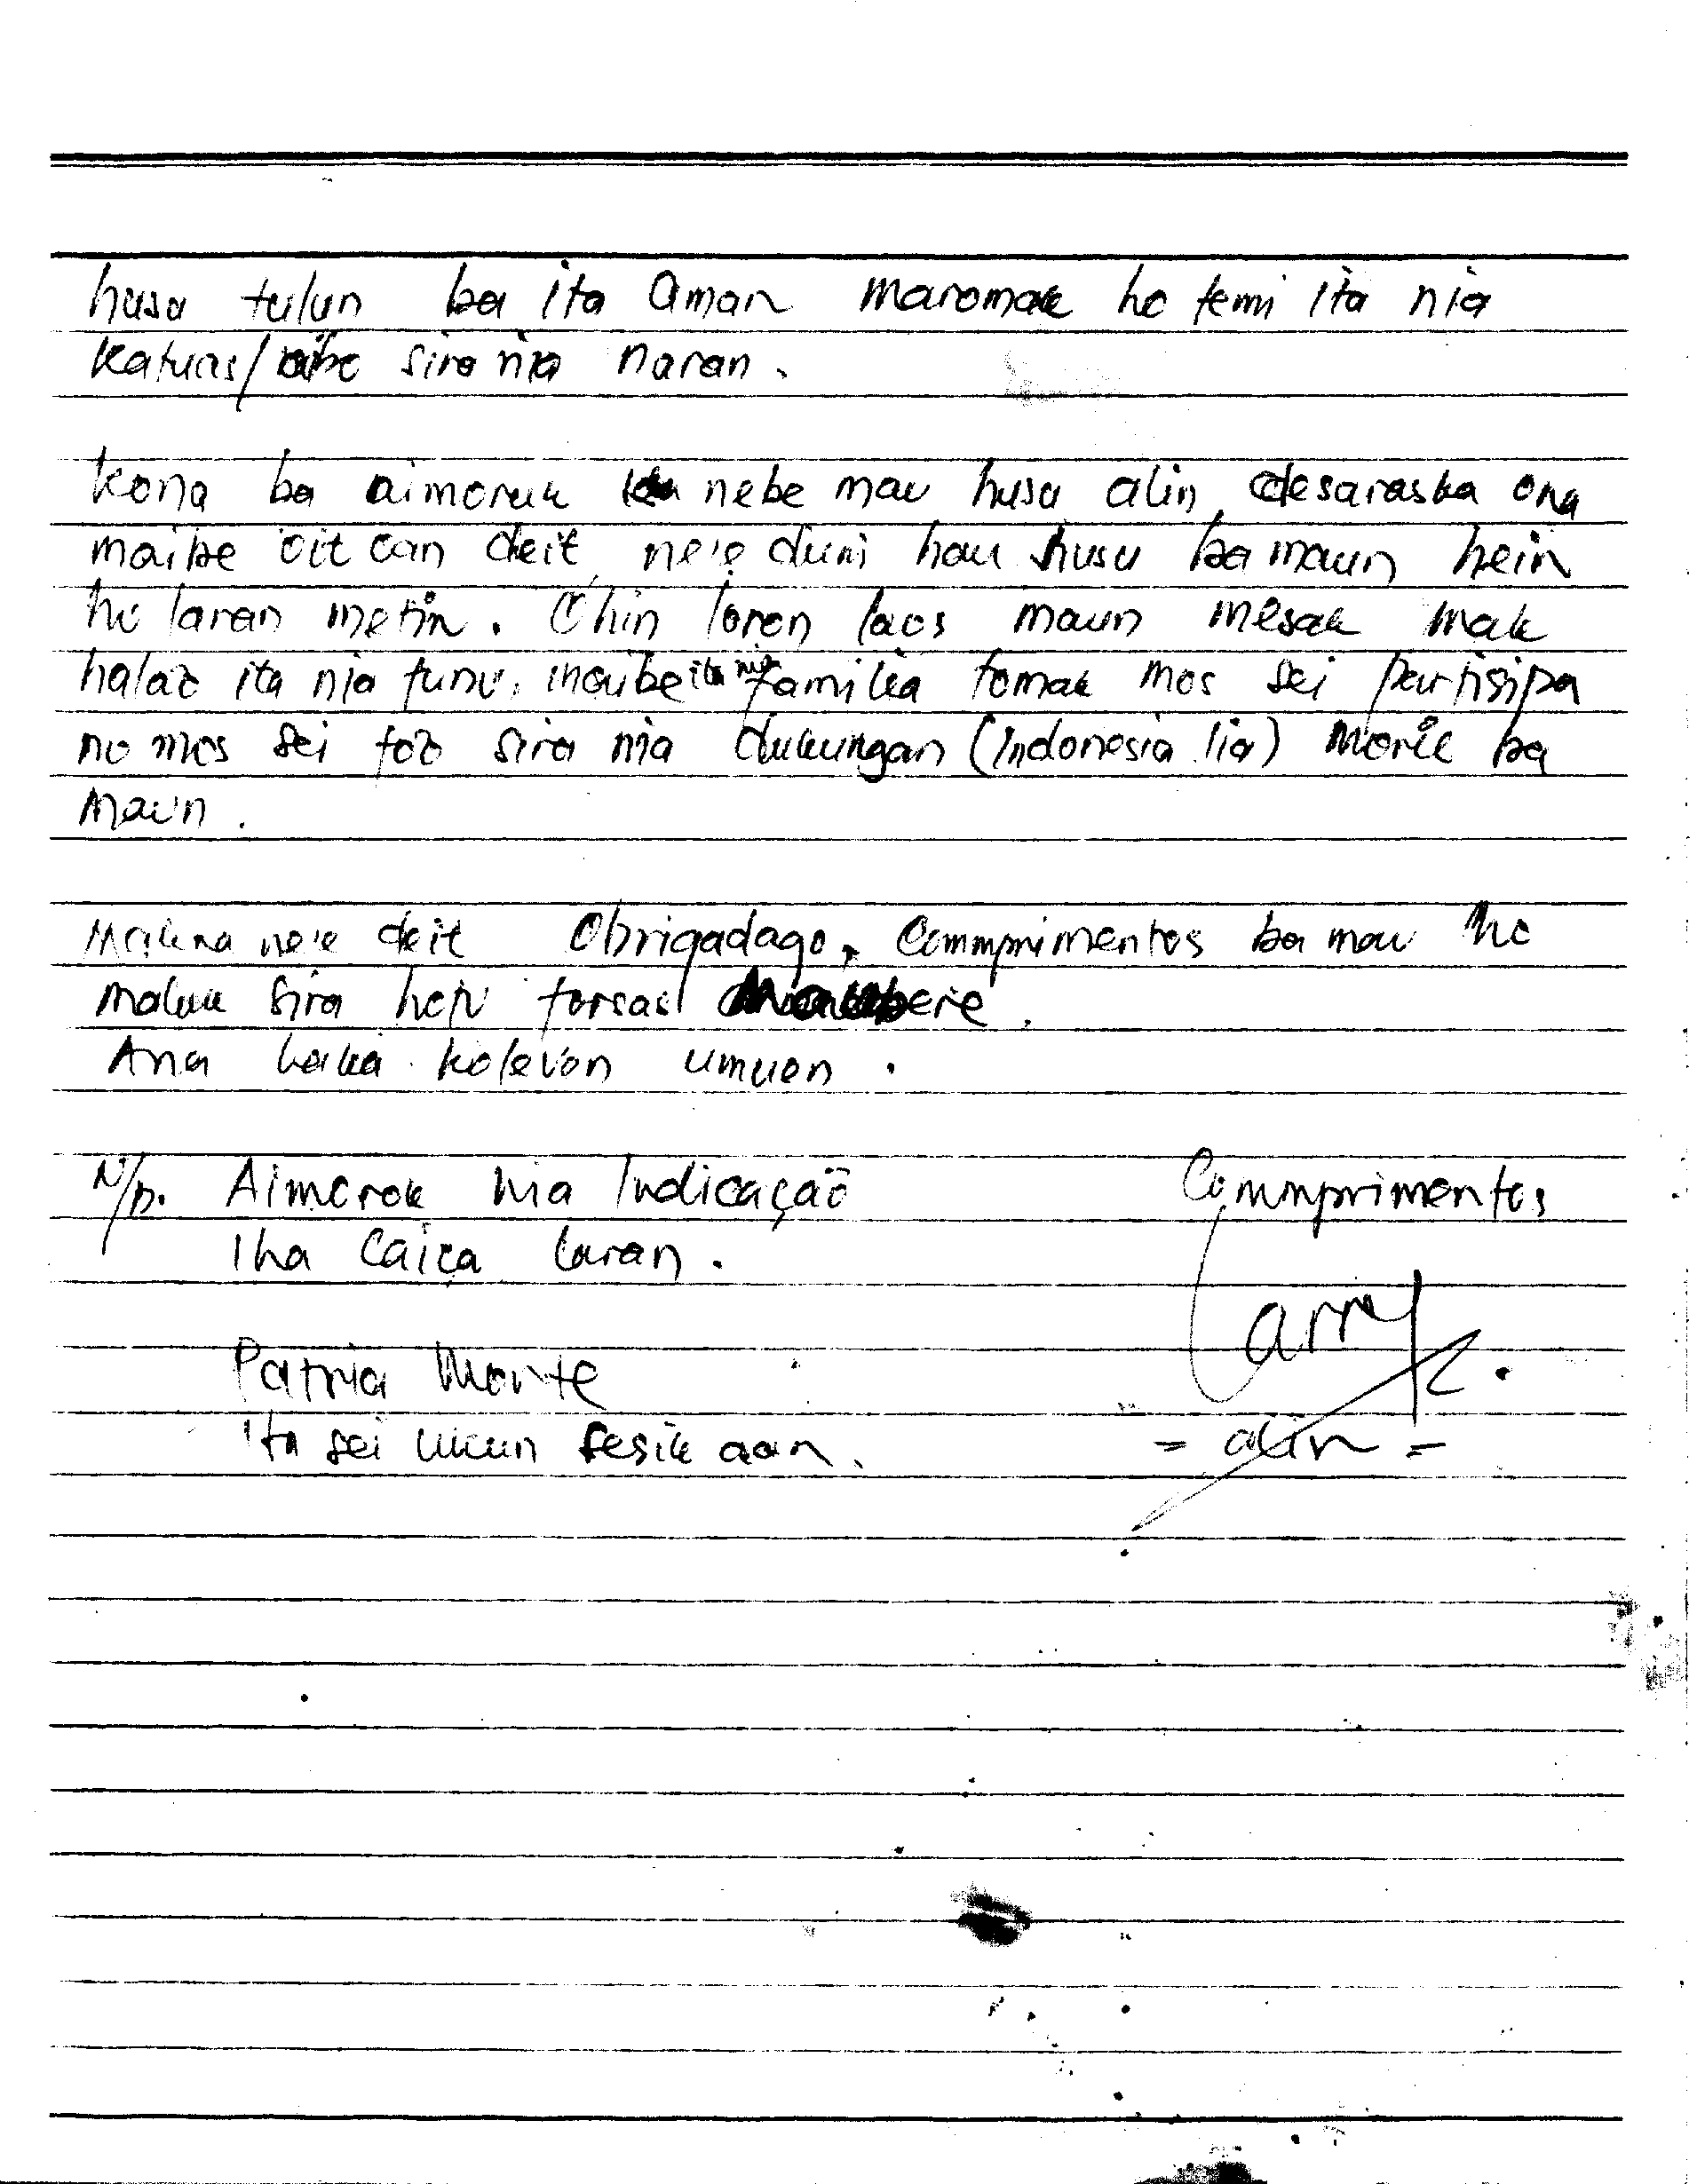 husu tulun ba ita aman maromak ho temi ita nia
Katuas/ sira nia naran.
Kona ba aimoruk nebe mau husu alin desaraska ona
maibe oit oan deit, ne'e duni hau husu ba maun hein
ho laran metin. Ohin loron laos maun mesak mak
halao ita nia funu, maibe ita nia familia tomak mos sei partisipa
no mos sei foo sira nia dukungan (Indonesia lia) Moril ba
Maun.
Maka ne'e deit Obrigadago, Commprimentos ba mau ho
maluk sira hotu forsasl Maubere.
Ana kaka kolevon umuon.
N/p. Aimorok nia Indicação
Iha Caixa laran.
Commprimentos
Larry
Patria Monte
Ita sei ukun sesik aan.
= alin =